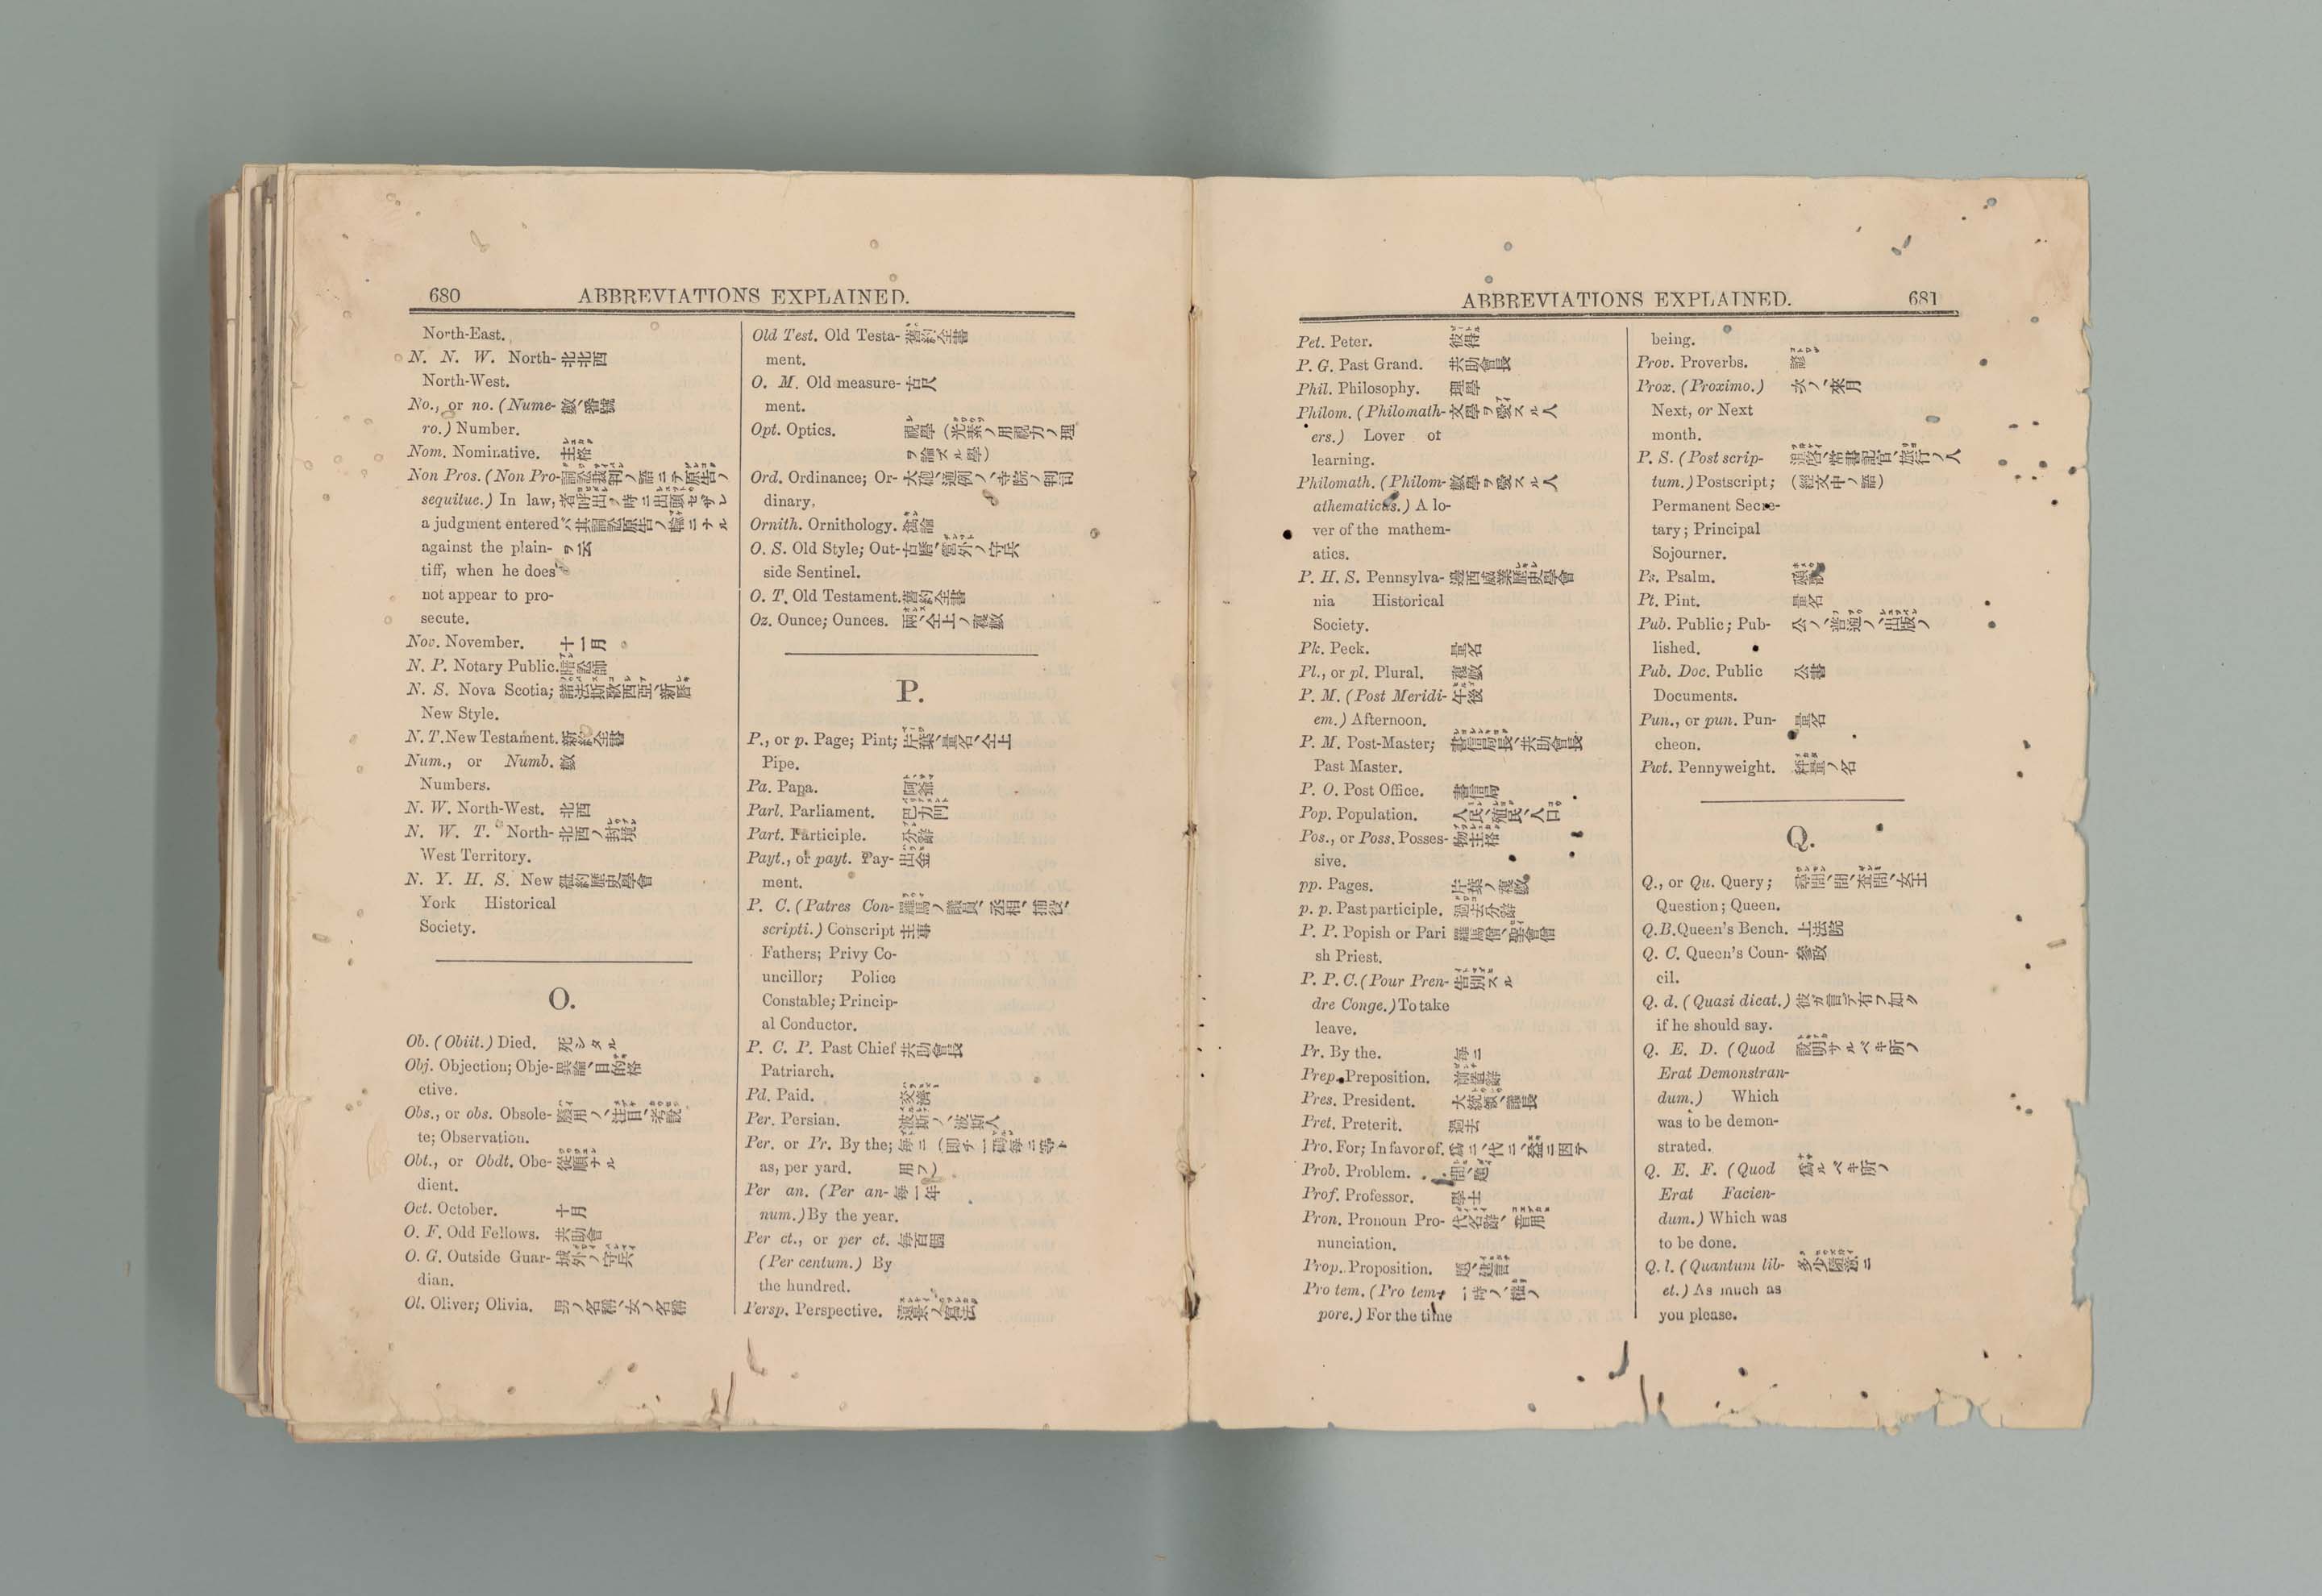 680 ABBREVIATIONS EXPLAINED.
North-East.
N. N. W. North- 北北西
North-West.
No., or no. (Nume- 數、番號
ro.) Number.
Nom. Nominative. 主格
Non Pros. (Non Pro- 詞訟裁判ノ語ニテ原告ノ
sequitue.) In law, 者呼出ノ時ニ出頭セザレ
a judgment entered バ其詞訟原告ノ輸ニナル
against the plain- ヲ云
tiff, when he does
not appear to pro-
secute.
Nov. November. 十一月
N. P. Notary Public. 訟師
N. S. Nova Scotia; 諾法斯歌西亞、新曆
New Style.
N. T. New Testament. 新約全書
Num., or Numb. 數
Numbers.
N. W. North-West. 北西
N. W. T. North- 北西ノ封境
West Territory.
N. Y. H. S. New 紐約歷史學會
York Historical
Society.
O.
Ob. (Obiit.) Died. 死シタル
Obj. Objection; Obje- 異論、目的格
ctive.
Obs., or obs. Obsole- 廢用ノ、注目、考說
te; Observation.
Obt., or Obdt. Obe- 從順ナル
dient.
Oct. October. 十月
O. F. Odd Fellows. 共助會
O. G. Outside Guar- 城外ノ守兵
dian.
Ol. Oliver; Olivia. 男ノ名稱、女ノ名稱
Old Test. Old Testa- 舊約全書
ment.
O. M. Old measure- 古尺
ment.
Opt. Optics. 視學 (光素ノ用視力ノ理
ヲ論ズル學)
Ord. Ordinance; Or- 大砲、通例ノ、寺院ノ判司
dinary.
Ornith. Ornithology. 禽論
O. S. Old Style; Out- 古曆、營外ノ守兵
side Sentinel.
O. T. Old Testament. 舊約全書
Oz. Ounce; Ounces. 兩、仝上ノ複數
P.
P., or p. Page; Pint; 片葉、量名、仝上
Pipe.
Pa. Papa. 阿爺
Parl. Parliament. 巴力門
Part. Participle. 分辭
Payt., or payt. Pay- 出金
ment.
P. C. (Patres Con- 羅馬ノ議員、丞相、捕役、
scripti.) Conscript 主事
Fathers; Privy Co-
uncillor; Police
Constable; Princip-
al Conductor.
P. C. P. Past Chief 共助會長
Patriarch.
Pd. Paid. 交濟
Per. Persian. 波斯ノ、波斯人
Per. or Pr. By the; 每ニ (即チ一碼每ニ等ト
as, per yard. 用フ)
Per an. (Per an- 每一年
num.) By the year.
Per ct., or per ct. 每百個
(Per centum.) By
the hundred.
Persp. Perspective. 遠景ノ寫法
ABBREVIATIONS EXPLAINED. 681
Pet. Peter. 彼得
P. G. Past Grand. 共助會長
Phil. Philosophy. 理學
Philom. (Philomath- 文學ヲ愛スル人
ers.) Lover of
learning.
Philomath. (Philom- 數學ヲ愛スル人
athematicus.) A lo-
ver of the mathem-
atics.
P. H. S. Pennsylva- 邊西威業歷史學會
nia Historical
Society.
Pk. Peck. 量名
Pl., or pl. Plural. 複數
P. M. (Post Meridi- 午後
em.) Afternoon.
P. M. Post-Master; 書信局長、共助會長
Past Master.
P. O. Post Office. 書信局
Pop. Population. 人民、殖民、人口
Pos., or Poss. Posses- 物主格
sive.
pp. Pages. 片葉ノ複數
p. p. Past participle. 過去分辭
P. P. Popish or Pari 羅馬僧、聖會僧
sh Priest.
P. P. C. (Pour Pren- 告別スル
dre Conge.) To take
leave.
Pr. By the. 每ニ
Prep. Preposition. 前置辭
Pres. President. 大統領、議長
Pret. Preterit. 過去
Pro. For; In favor of. 爲ニ、代ニ、益ニ因テ
Prob. Problem. 問題
Prof. Professor. 學士
Pron. Pronoun Pro- 代名辭、音用
nunciation.
Prop. Proposition. 題、建言
Pro tem. (Pro tem- 一時ノ、權ノ
pore.) For the time
being.
Prov. Proverbs. 諺
Prox. (Proximo.) 次ノ、來月
Next, or Next
month.
P. S. (Post scrip- 追啓、常書記官、旅行ノ人
tum.) Postscript; (經文中ノ語)
Permanent Secre-
tary; Principal
Sojourner.
Ps. Psalm. 頌歌
Pt. Pint. 量名
Pub. Public; Pub- 公ノ、普通ノ、出版ノ
lished.
Pub. Doc. Public 公書
Documents.
Pun., or pun. Pun- 量名
cheon.
Pwt. Pennyweight. 秤量ノ名
Q.
Q., or Qu. Query; 尋問、問、查問、女王
Question; Queen.
Q. B. Queen's Bench. 上法院
Q. C. Queen's Coun- 參政
cil.
Q. d. (Quasi dicat.) 彼ガ言テ有フ如ク
if he should say.
Q. E. D. (Quod 說明サルベキ所ノ
Erat Demonstran-
dum.) Which
was to be demon-
strated.
Q. E. F. (Quod 爲ルベキ所ノ
Erat Facien-
dum.) Which was
to be done.
Q. l. (Quantum lib- 多少隨意ニ
et.) As much as
you please.